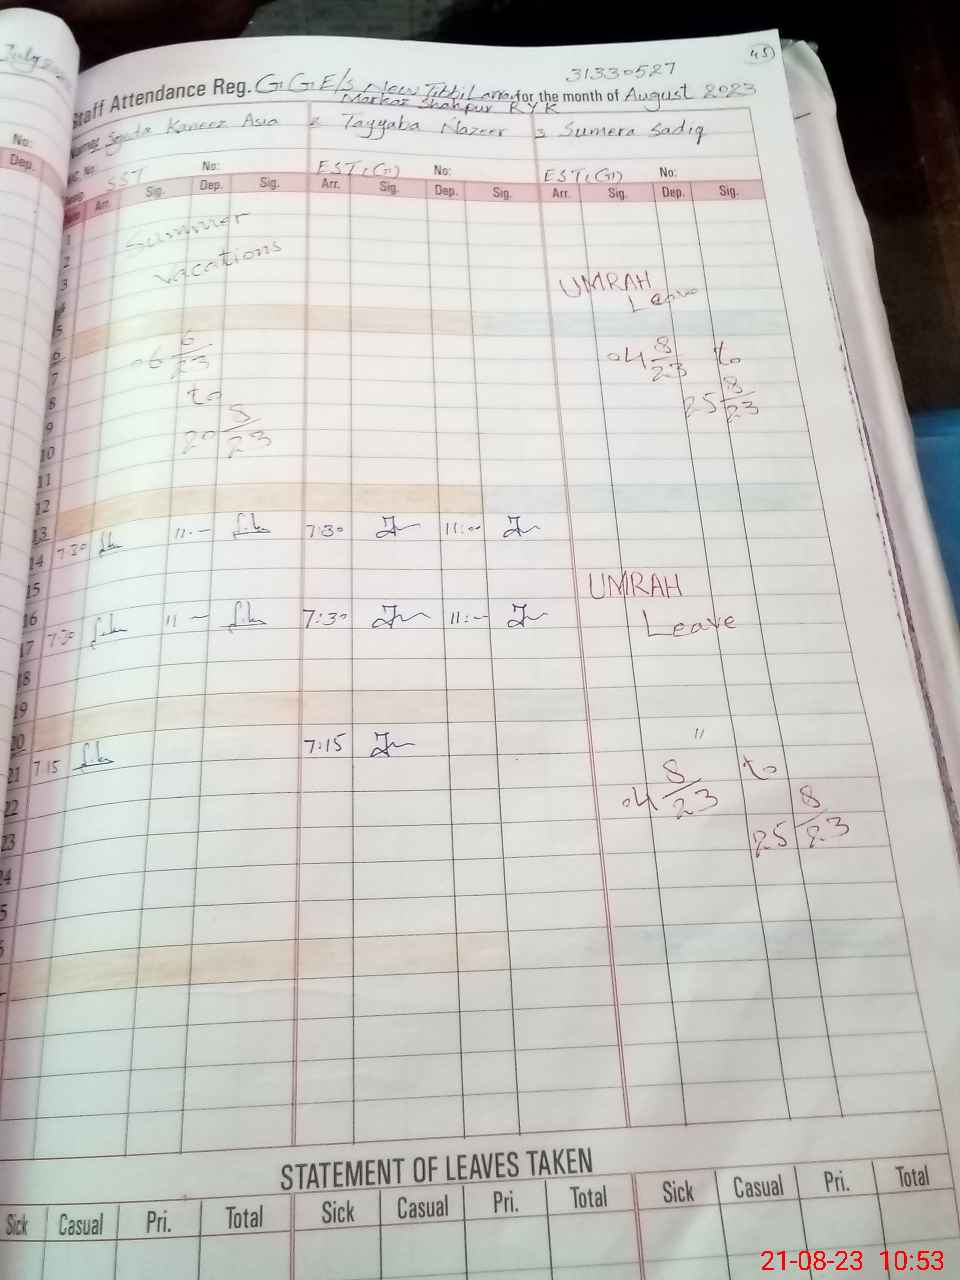 July
45
31330527
Staff Attendance Reg. G.G.E/S New Tibbi Larran for the month of August 2023
Markaz Shahpur R Y K
Name: Syeda Kaneez Asia 2 Tayyaba Nazeer 3 Sumera Sadiq
No:
SST No: EST,(G) No: EST,(G) No:
Dep.
Arr. Sig. Dep. Sig. Arr. Sig. Dep. Sig. Arr. Sig. Dep. Sig.
1 Summer
2
3 vacations UMRAH
4 Leave
5
6 06 6/23 04 8/23 to
7
8 to 25 8/23
9
10 20 8/23
11
12
13
14 7:30 11 - 7:30 11:00
15 UMRAH
16 Leave
17 7:30 11 - 7:30 11:00
18
19
20 "
21 7:15 7:15 04 8/23 to
22
23 25 8/23
24
STATEMENT OF LEAVES TAKEN
Sick Casual Pri. Total Sick Casual Pri. Total Sick Casual Pri. Total
21-08-23 10:53